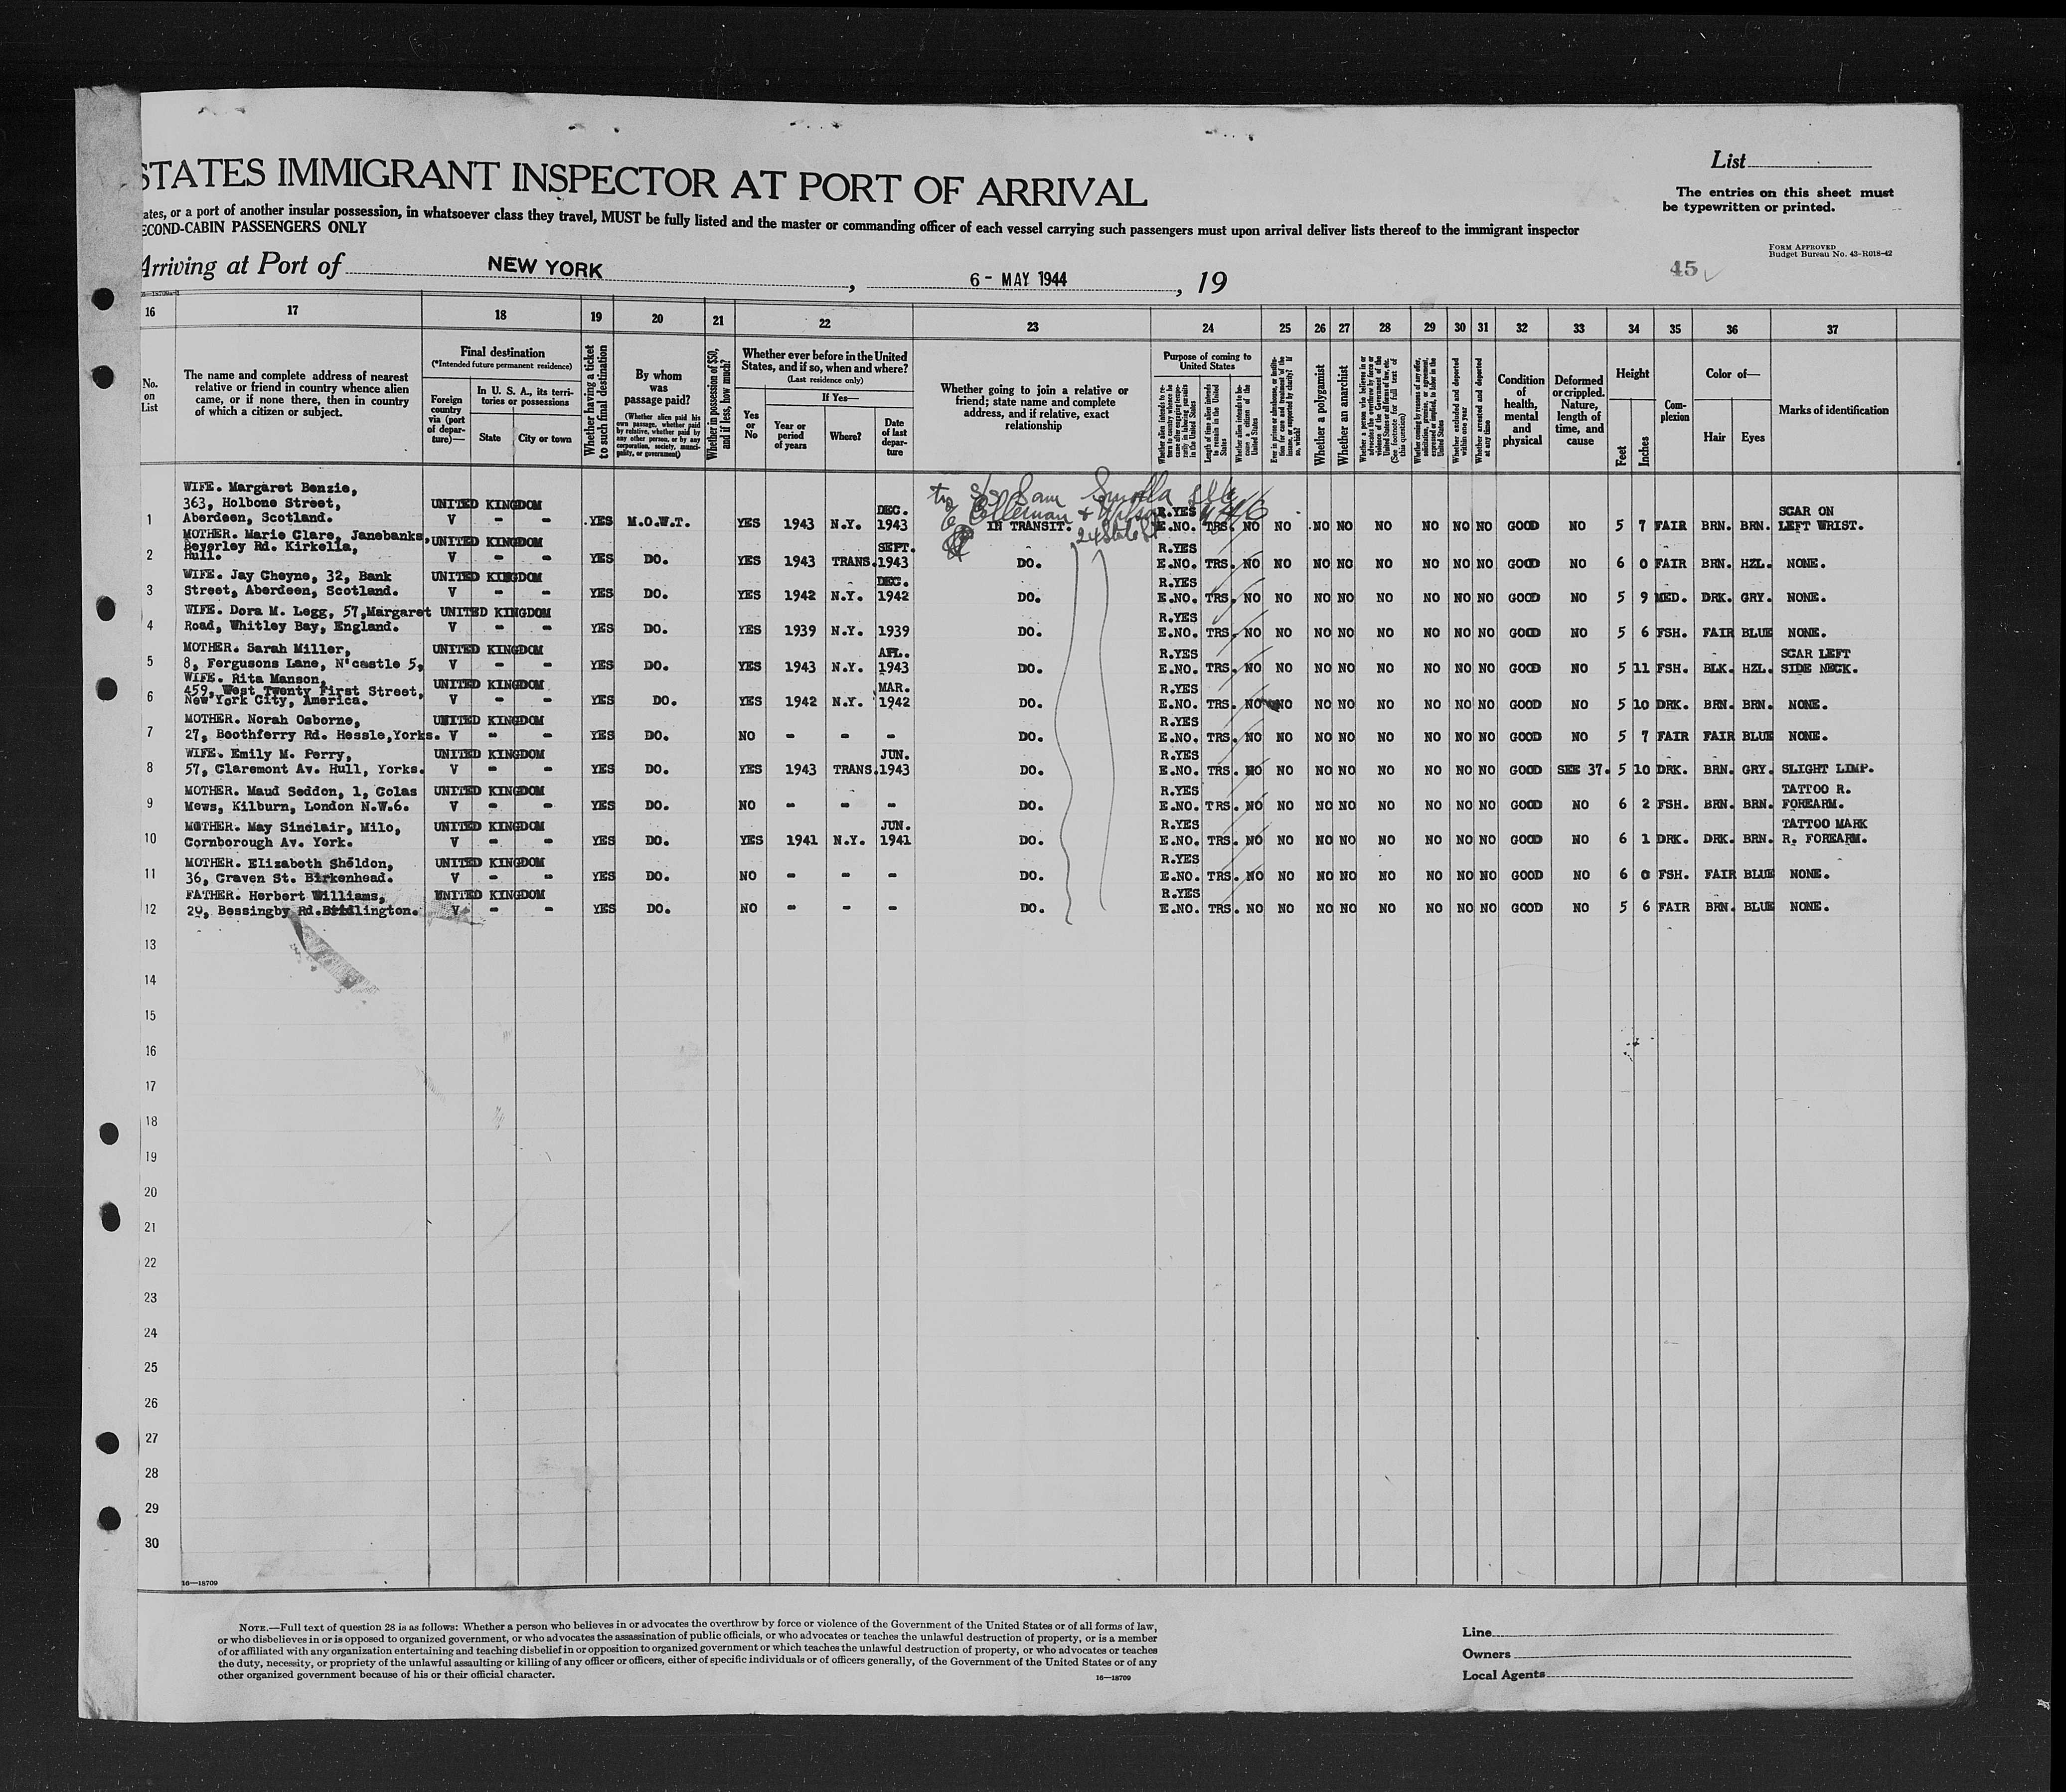 STATES IMMIGRANT INSPECTOR AT PORT OF ARRIVAL
List
The entries on this sheet must
be typewritten or printed.
ates, or a port of another insular possession, in whatsoever class they travel, MUST be fully listed and the master or commanding officer of each vessel carrying such passengers must upon arrival deliver lists thereof to the immigrant inspector
ECOND-CABIN PASSENGERS ONLY
FORM APPROVED
Budget Bureau No. 43-R018-42
45
Arriving at Port of NEW YORK, 6 - MAY 1944, 19
16 17 18 19 20 21 22 23 24 25 26 27 28 29 30 31 32 33 34 35 36 37
No. on List
The name and complete address of nearest relative or friend in country whence alien came, or if none there, then in country of which a citizen or subject.
Final destination
(*Intended future permanent residence)
Foreign country via (port of departure)—
In U. S. A., its territories or possessions
State
City or town
Whether having a ticket to such final destination
By whom was passage paid?
(Whether alien paid his own passage, whether paid by relative, whether paid by any other person, or by any corporation, society, municipality, or government)
Whether in possession of $50, and if less, how much?
Whether ever before in the United States, and if so, when and where?
(Last residence only)
Yes or No
If Yes—
Year or period of years
Where?
Date of last departure
Whether going to join a relative or friend; state name and complete address, and if relative, exact relationship
Purpose of coming to United States
Whether a polygamist
Whether an anarchist
Whether excluded and deported within one year
Whether arrested and deported at any time
Condition of health, mental and physical
Deformed or crippled. Nature, length of time, and cause
Height
Feet
Inches
Complexion
Color of—
Hair
Eyes
Marks of identification
to s/s Sam
Ellerman & Wilson
24 State St
1 WIFE. Margaret Benzie, 363, Holbone Street, Aberdeen, Scotland. UNITED KINGDOM V - - YES M.O.W.T. YES 1943 N.Y. DEC. 1943 IN TRANSIT. R.YES E.NO. TRS. NO NO NO NO NO NO NO NO GOOD NO 5 7 FAIR BRN. BRN. SCAR ON LEFT WRIST.
2 MOTHER. Marie Clare, Janebanks, Beverley Rd. Kirkella, Hull. UNITED KINGDOM V - - YES DO. YES 1943 TRANS. SEPT. 1943 DO. R.YES E.NO. TRS. NO NO NO NO NO NO NO NO GOOD NO 6 0 FAIR BRN. HZL. NONE.
3 WIFE. Jay Cheyne, 32, Bank Street, Aberdeen, Scotland. UNITED KINGDOM V - - YES DO. YES 1942 N.Y. DEC. 1942 DO. R.YES E.NO. TRS. NO NO NO NO NO NO NO NO GOOD NO 5 9 MED. DRK. GRY. NONE.
4 WIFE. Dora M. Legg, 57, Margaret Road, Whitley Bay, England. UNITED KINGDOM V - - YES DO. YES 1939 N.Y. 1939 DO. R.YES E.NO. TRS. NO NO NO NO NO NO NO NO GOOD NO 5 6 FSH. FAIR BLUE NONE.
5 MOTHER. Sarah Miller, 8, Fergusons Lane, N'castle 5, UNITED KINGDOM V - - YES DO. YES 1943 N.Y. APL. 1943 DO. R.YES E.NO. TRS. NO NO NO NO NO NO NO NO GOOD NO 5 11 FSH. BLK. HZL. SCAR LEFT SIDE NECK.
6 WIFE. Rita Manson, 459, West Twenty First Street, New York City, America. UNITED KINGDOM V - - YES DO. YES 1942 N.Y. MAR. 1942 DO. R.YES E.NO. TRS. NO NO NO NO NO NO NO NO GOOD NO 5 10 DRK. BRN. BRN. NONE.
7 MOTHER. Norah Osborne, 27, Boothferry Rd. Hessle, Yorks. UNITED KINGDOM V - - YES DO. NO - - - DO. R.YES E.NO. TRS. NO NO NO NO NO NO NO NO GOOD NO 5 7 FAIR FAIR BLUE NONE.
8 WIFE. Emily M. Perry, 57, Claremont Av. Hull, Yorks. UNITED KINGDOM V - - YES DO. YES 1943 TRANS. JUN. 1943 DO. R.YES E.NO. TRS. NO NO NO NO NO NO NO NO GOOD SEE 37. 5 10 DRK. BRN. GRY. SLIGHT LIMP.
9 MOTHER. Maud Seddon, 1, Colas Mews, Kilburn, London N.W.6. UNITED KINGDOM V - - YES DO. NO - - - DO. R.YES E.NO. TRS. NO NO NO NO NO NO NO NO GOOD NO 6 2 FSH. BRN. BRN. TATTOO R. FOREARM.
10 MOTHER. May Sinclair, Milo, Cornborough Av. York. UNITED KINGDOM V - - YES DO. YES 1941 N.Y. JUN. 1941 DO. R.YES E.NO. TRS. NO NO NO NO NO NO NO NO GOOD NO 6 1 DRK. DRK. BRN. TATTOO MARK R. FOREARM.
11 MOTHER. Elizabeth Sheldon, 36, Craven St. Birkenhead. UNITED KINGDOM V - - YES DO. NO - - - DO. R.YES E.NO. TRS. NO NO NO NO NO NO NO NO GOOD NO 6 0 FSH. FAIR BLUE NONE.
12 FATHER. Herbert Williams, 29, Bessingby Rd. Bridlington. UNITED KINGDOM V - - YES DO. NO - - - DO. R.YES E.NO. TRS. NO NO NO NO NO NO NO NO GOOD NO 5 6 FAIR BRN. BLUE NONE.
13
14
15
16
17
18
19
20
21
22
23
24
25
26
27
28
29
30
16—18709
NOTE.—Full text of question 28 is as follows: Whether a person who believes in or advocates the overthrow by force or violence of the Government of the United States or of all forms of law,
or who disbelieves in or is opposed to organized government, or who advocates the assassination of public officials, or who advocates or teaches the unlawful destruction of property, or is a member
of or affiliated with any organization entertaining and teaching disbelief in or opposition to organized government or which teaches the unlawful destruction of property, or who advocates or teaches
the duty, necessity, or propriety of the unlawful assaulting or killing of any officer or officers, either of specific individuals or of officers generally, of the Government of the United States or of any
other organized government because of his or their official character.
16—18709
Line
Owners
Local Agents